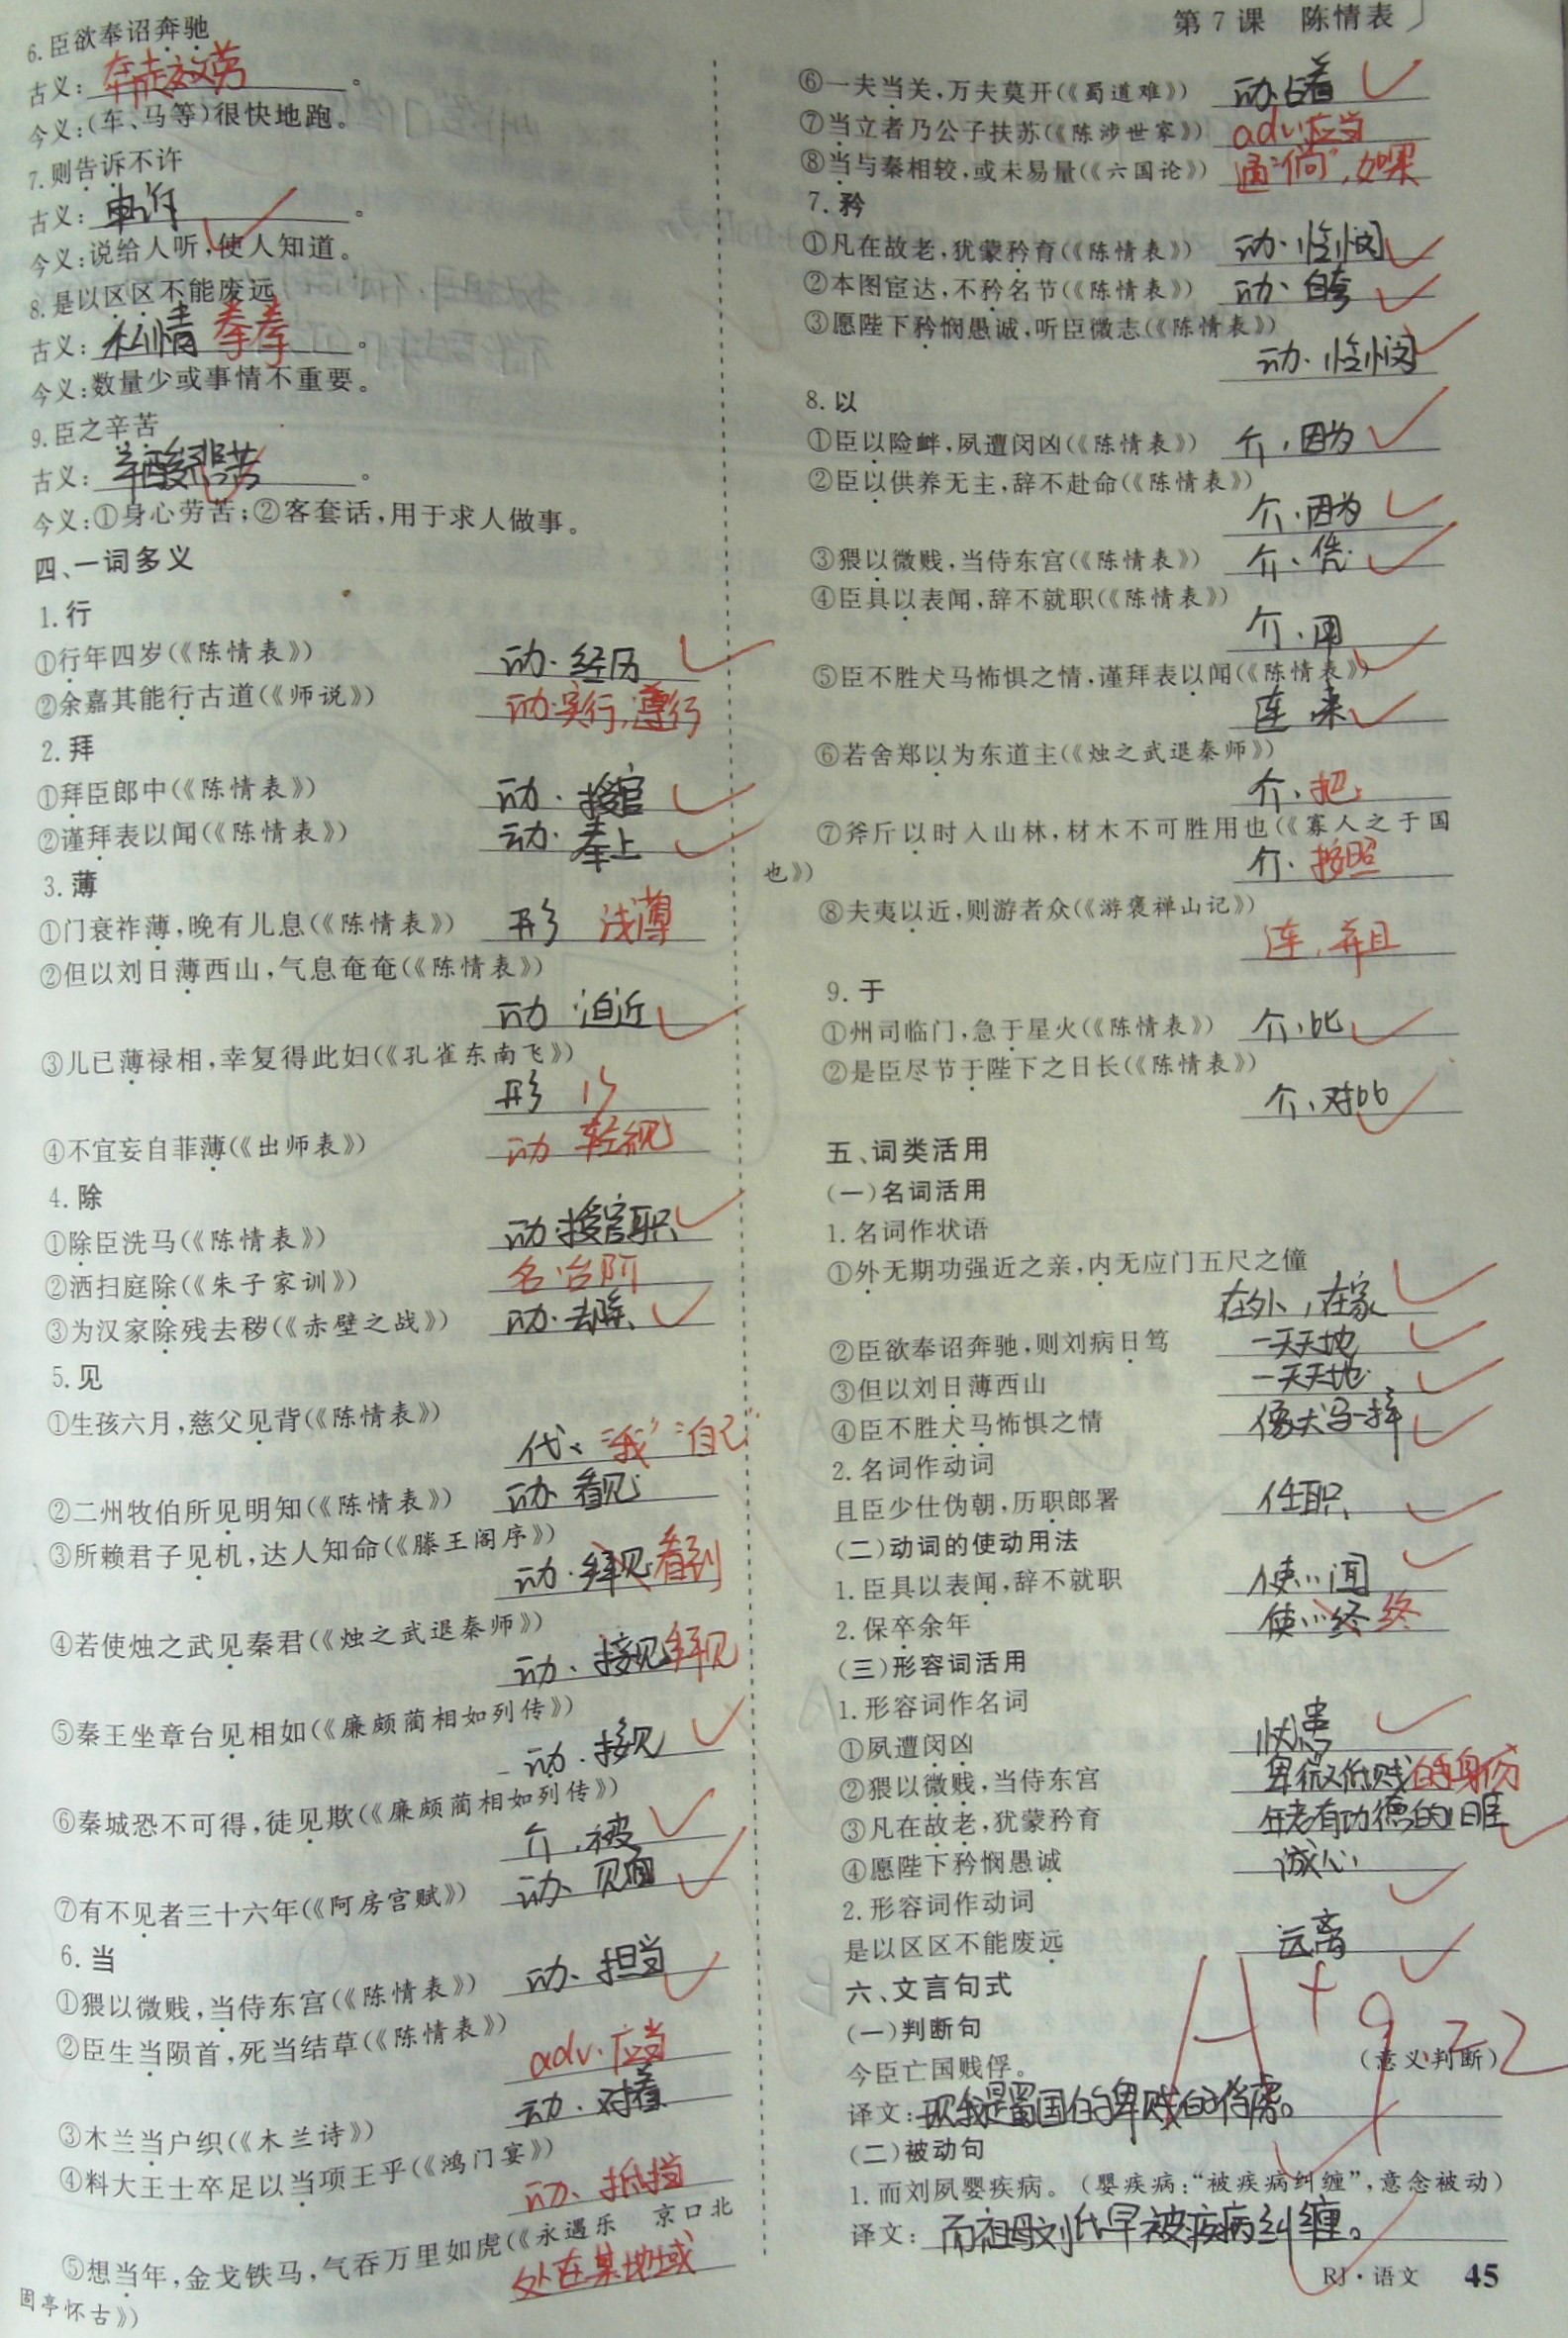 第7课 陈情表
6.臣欲奉诏奔驰
古义:奔走效劳。
今义:(车、马等)很快地跑。
7.则告诉不许
古义:申诉。
今义:说给人听,使人知道。
8.是以区区不能废远
古义:私情 拳拳。
今义:数量少或事情不重要。
9.臣之辛苦
古义:辛酸悲苦。
今义:①身心劳苦;②客套话,用于求人做事。
四、一词多义
1.行
①行年四岁(《陈情表》) 动·经历
②余嘉其能行古道(《师说》) 动·实行,遵行
2.拜
①拜臣郎中(《陈情表》) 动·授官
②谨拜表以闻(《陈情表》) 动·奉上
3.薄
①门衰祚薄,晚有儿息(《陈情表》) 形 浅薄
②但以刘日薄西山,气息奄奄(《陈情表》)
动 迫近
③儿已薄禄相,幸复得此妇(《孔雀东南飞》)
形 少
④不宜妄自菲薄(《出师表》) 动 轻视
4.除
①除臣洗马(《陈情表》) 动·授官职
②洒扫庭除(《朱子家训》) 名·台阶
③为汉家除残去秽(《赤壁之战》) 动·去除
5.见
①生孩六月,慈父见背(《陈情表》)
代、“我”“自己”
②二州牧伯所见明知(《陈情表》) 动·看见
③所赖君子见机,达人知命(《滕王阁序》)
动·拜见 看到
④若使烛之武见秦君(《烛之武退秦师》)
动、接见 拜见
⑤秦王坐章台见相如(《廉颇蔺相如列传》)
动·接见
⑥秦城恐不可得,徒见欺(《廉颇蔺相如列传》)
介,被
⑦有不见者三十六年(《阿房宫赋》) 动、见面
6.当
①猥以微贱,当侍东宫(《陈情表》) 动、担当
②臣生当陨首,死当结草(《陈情表》)
adv.应当
③木兰当户织(《木兰诗》) 动·对着
④料大王士卒足以当项王乎(《鸿门宴》)
动、抵挡
⑤想当年,金戈铁马,气吞万里如虎(《永遇乐 京口北
固亭怀古》) 处在某地域
⑥一夫当关,万夫莫开(《蜀道难》) 动占着
⑦当立者乃公子扶苏(《陈涉世家》) adv.应当
⑧当与秦相较,或未易量(《六国论》) 通“倘”,如果
7.矜
①凡在故老,犹蒙矜育(《陈情表》) 动·怜悯
②本图宦达,不矜名节(《陈情表》) 动·自夸
③愿陛下矜悯愚诚,听臣微志(《陈情表》)
动·怜悯
8.以
①臣以险衅,夙遭闵凶(《陈情表》) 介,因为
②臣以供养无主,辞不赴命(《陈情表》)
介、因为
③猥以微贱,当侍东宫(《陈情表》) 介、凭
④臣具以表闻,辞不就职(《陈情表》)
介、用
⑤臣不胜犬马怖惧之情,谨拜表以闻(《陈情表》)
连 来
⑥若舍郑以为东道主(《烛之武退秦师》)
介、把
⑦斧斤以时入山林,材木不可胜用也(《寡人之于国
也》) 介·按照
⑧夫夷以近,则游者众(《游褒禅山记》)
连,并且
9.于
①州司临门,急于星火(《陈情表》) 介,比
②是臣尽节于陛下之日长(《陈情表》)
介、对
五、词类活用
(一)名词活用
1.名词作状语
①外无期功强近之亲,内无应门五尺之僮
在外,在家
②臣欲奉诏奔驰,则刘病日笃 一天天地
③但以刘日薄西山 一天天地
④臣不胜犬马怖惧之情 像犬马一样
2.名词作动词
且臣少仕伪朝,历职郎署 任职
(二)动词的使动用法
1.臣具以表闻,辞不就职 使…闻
2.保卒余年 使…终 终
(三)形容词活用
1.形容词作名词
①夙遭闵凶 忧患
②猥以微贱,当侍东宫 卑微低贱的身份
③凡在故老,犹蒙矜育 年老有功德的旧臣
④愿陛下矜悯愚诚 诚心
2.形容词作动词
是以区区不能废远 远离
六、文言句式
(一)判断句
今臣亡国贱俘。 (意义判断)
A+ 9.22
译文:现我是蜀国的卑贱的俘虏。
(二)被动句
1.而刘夙婴疾病。(婴疾病:“被疾病纠缠”,意念被动)
译文:而祖母刘氏早被疾病纠缠。
RJ·语文 45